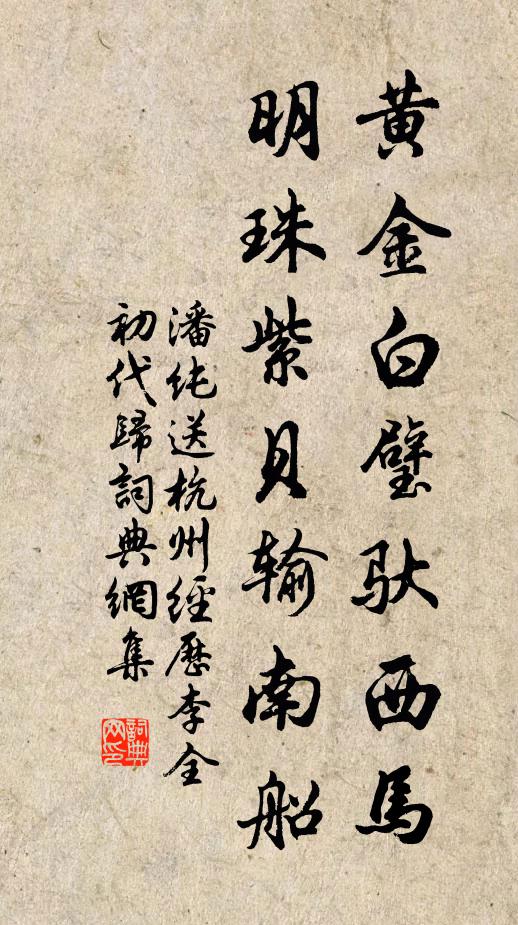 黄金白璧馱西馬
明珠紫貝输南船
潘纯送杭州經歷李全
初代歸詞典網集
詞典网印